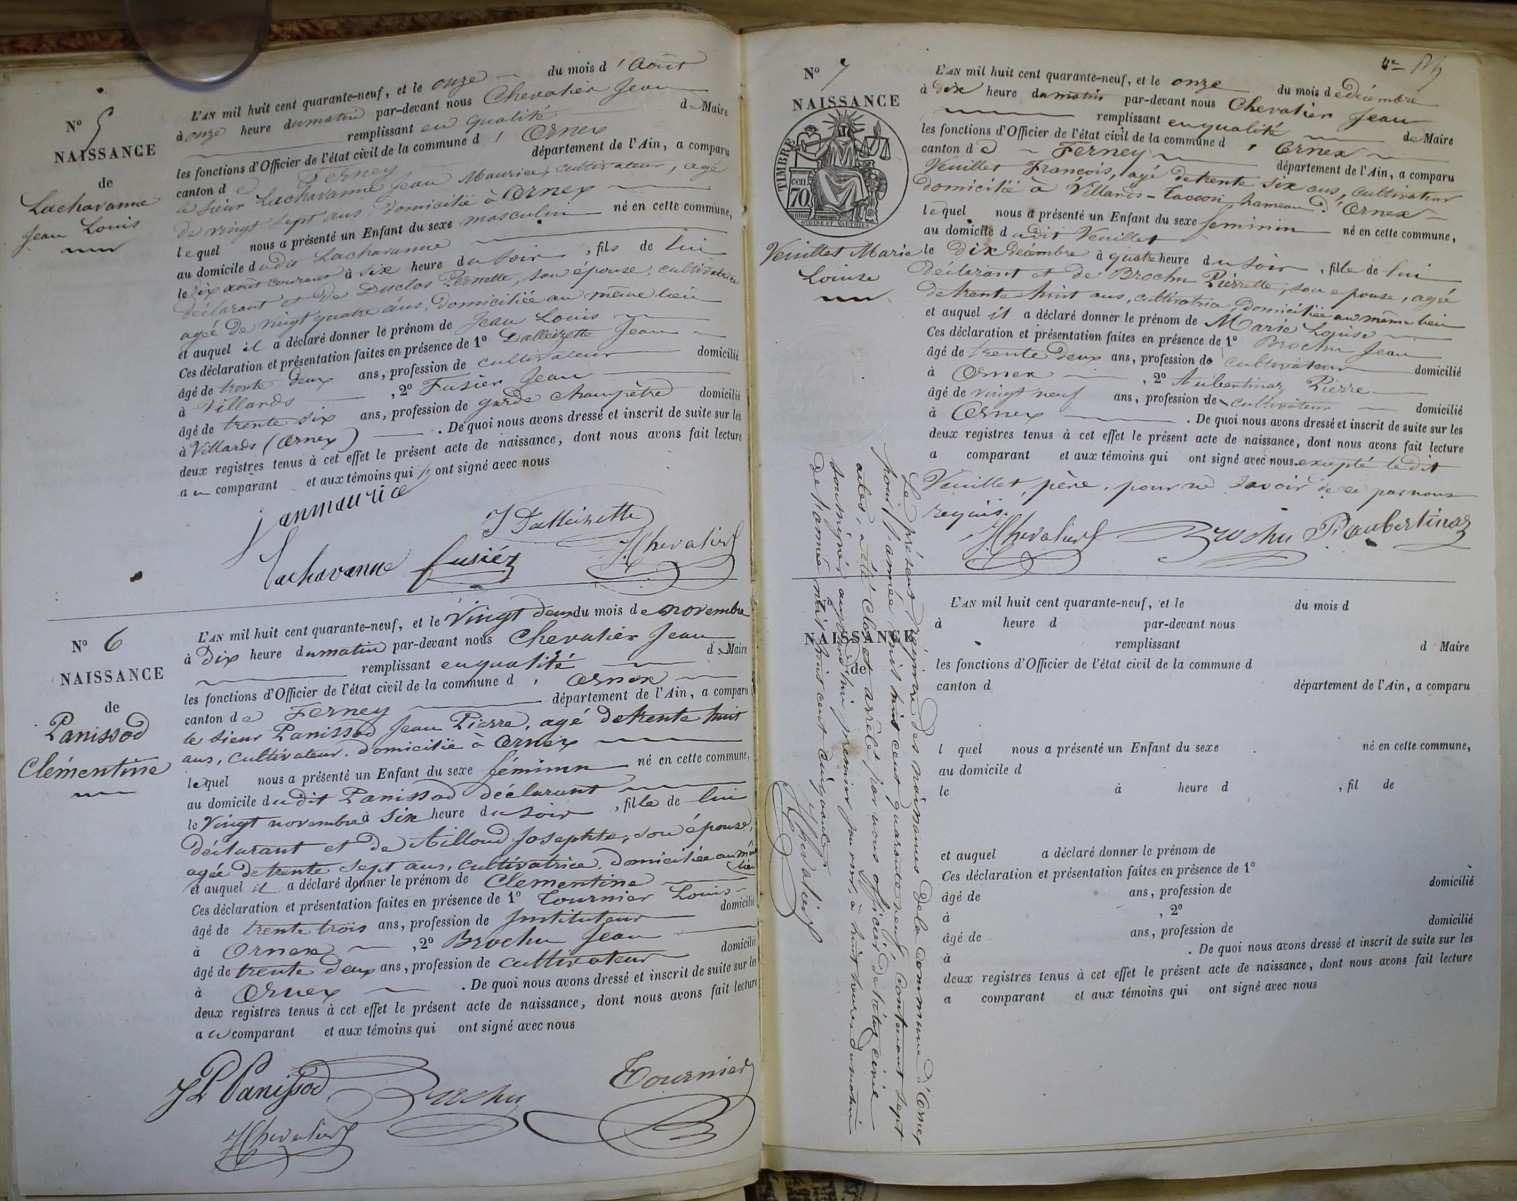 N° 5
NAISSANCE
de
Lachavanne
Jean Louis
L'AN mil huit cent quarante-neuf, et le onze du mois d'Août
à onze heure du matin par-devant nous Chevalier Jean
remplissant en qualité de Maire
les fonctions d'Officier de l'état civil de la commune d'Ornex
canton de Ferney département de l'Ain, a comparu
le sieur Lachavanne Jean Maurice, cultivateur, agé
de vingt sept ans, domicilié à Ornex
lequel nous a présenté un Enfant du sexe masculin né en cette commune,
au domicile dudit Lachavanne
le dix août courant à six heure du soir, fils de lui
déclarant et de Duclos Pernette, son épouse, cultivatrice
agée de vingt quatre ans, domiciliée au même lieu
et auquel il a déclaré donner le prénom de Jean Louis
Ces déclaration et présentation faites en présence de 1° Dalleizette Jean
âgé de trente deux ans, profession de cultivateur domicilié
à Villards, 2° Fusier Jean
âgé de trente six ans, profession de garde champêtre domicilié
à Villards (Ornex). De quoi nous avons dressé et inscrit de suite sur les
deux registres tenus à cet effet le présent acte de naissance, dont nous avons fait lecture
au comparant et aux témoins qui ont signé avec nous
janmaurice
Lachavanne
J Dalleizette
fusiér
JChevalier
N° 6
NAISSANCE
de
Panissod
Clémentine
L'AN mil huit cent quarante-neuf, et le Vingt deux du mois de novembre
à Dix heure du matin par-devant nous Chevalier Jean
remplissant en qualité de Maire
les fonctions d'Officier de l'état civil de la commune d'Ornex
canton de Ferney département de l'Ain, a comparu
le sieur Panissod Jean Pierre, agé de trente huit
ans, cultivateur, domicilié à Ornex
lequel nous a présenté un Enfant du sexe féminin né en cette commune,
au domicile dudit Panissod déclarant
le Vingt novembre à six heure du soir, fille de lui
déclarant et de Ailloud Josephte, son épouse,
agée de trente sept ans, cultivatrice, domiciliée au même lieu
et auquel il a déclaré donner le prénom de Clementine
Ces déclaration et présentation faites en présence de 1° Tournier Louis
âgé de trente trois ans, profession de Instituteur domicilié
à Ornex, 2° Brochu Jean
âgé de trente deux ans, profession de cultivateur domicilié
à Ornex. De quoi nous avons dressé et inscrit de suite sur les
deux registres tenus à cet effet le présent acte de naissance, dont nous avons fait lecture
au comparant et aux témoins qui ont signé avec nous
JP Panissod
Brochu
Tournier
JChevalier
N° 7
NAISSANCE
TIMBRE
cen 70
Veuillet Marie
Louise
L'AN mil huit cent quarante-neuf, et le onze du mois de décembre
à dix heure du matin par-devant nous Chevalier Jean
remplissant en qualité de Maire
les fonctions d'Officier de l'état civil de la commune d'Ornex
canton de Ferney département de l'Ain, a comparu
Veuillet François, agé de trente six ans, cultivateur
domicilié à Villards-Tacon, hameau d'Ornex
lequel nous a présenté un Enfant du sexe feminin né en cette commune,
au domicile dudit Veuillet
le dix décembre à quatre heure du soir, fille de lui
déclarant et de Brochu Pierrette, son epouse, agée
de trente huit ans, cultivatrice, domiciliée au même lieu
et auquel il a déclaré donner le prénom de Marie Louise
Ces déclaration et présentation faites en présence de 1° Brochu Jean
âgé de trente deux ans, profession de cultivateur domicilié
à Ornex, 2° Aubertinaz Pierre
âgé de vingt neuf ans, profession de cultivateur domicilié
à Ornex. De quoi nous avons dressé et inscrit de suite sur les
deux registres tenus à cet effet le présent acte de naissance, dont nous avons fait lecture
a comparant et aux témoins qui ont signé avec nous excepté le dit
Veuillet, père, pour ne savoir de ce par nous
requis.
JChevalier
Brochu
P. aubertinaz
Le présent régistre des naissances de la commune d'Ornex
pour l'année mil huit cent quarante neuf, contenant sept
actes, a été clos et arrêté par nous officier de l'état civil
soussigné aujourd'hui premier janvier, à huit heures du matin
de l'année mil huit cent cinquante
JChevalier
NAISSANCE
de
L'AN mil huit cent quarante-neuf, et le du mois d
à heure d par-devant nous
remplissant d Maire
les fonctions d'Officier de l'état civil de la commune d
canton d département de l'Ain, a comparu
l quel nous a présenté un Enfant du sexe né en cette commune,
au domicile d
le à heure d , fil de
et auquel a déclaré donner le prénom de
Ces déclaration et présentation faites en présence de 1°
âgé de ans, profession de domicilié
à , 2°
âgé de ans, profession de domicilié
à . De quoi nous avons dressé et inscrit de suite sur les
deux registres tenus à cet effet le présent acte de naissance, dont nous avons fait lecture
a comparant et aux témoins qui ont signé avec nous